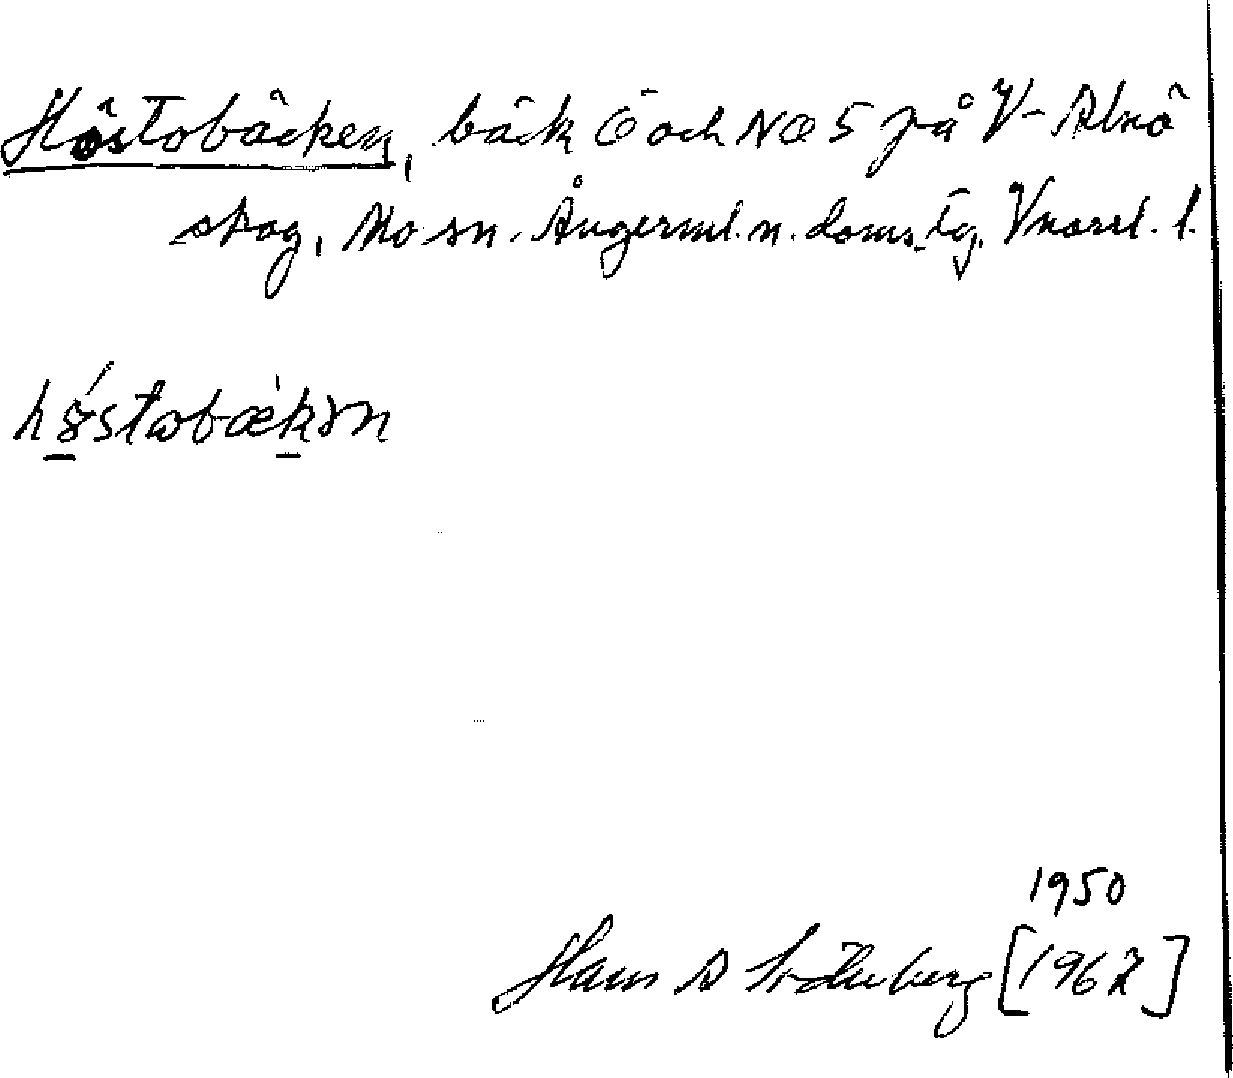 Höstobäcken, bäck Ö och NO 5 på V-Alnö
skog, Mo sn. Ångerml. n. doms.tg. Vnorrl. l.
høstobækən
1950
Hans A Söderberg [1962]